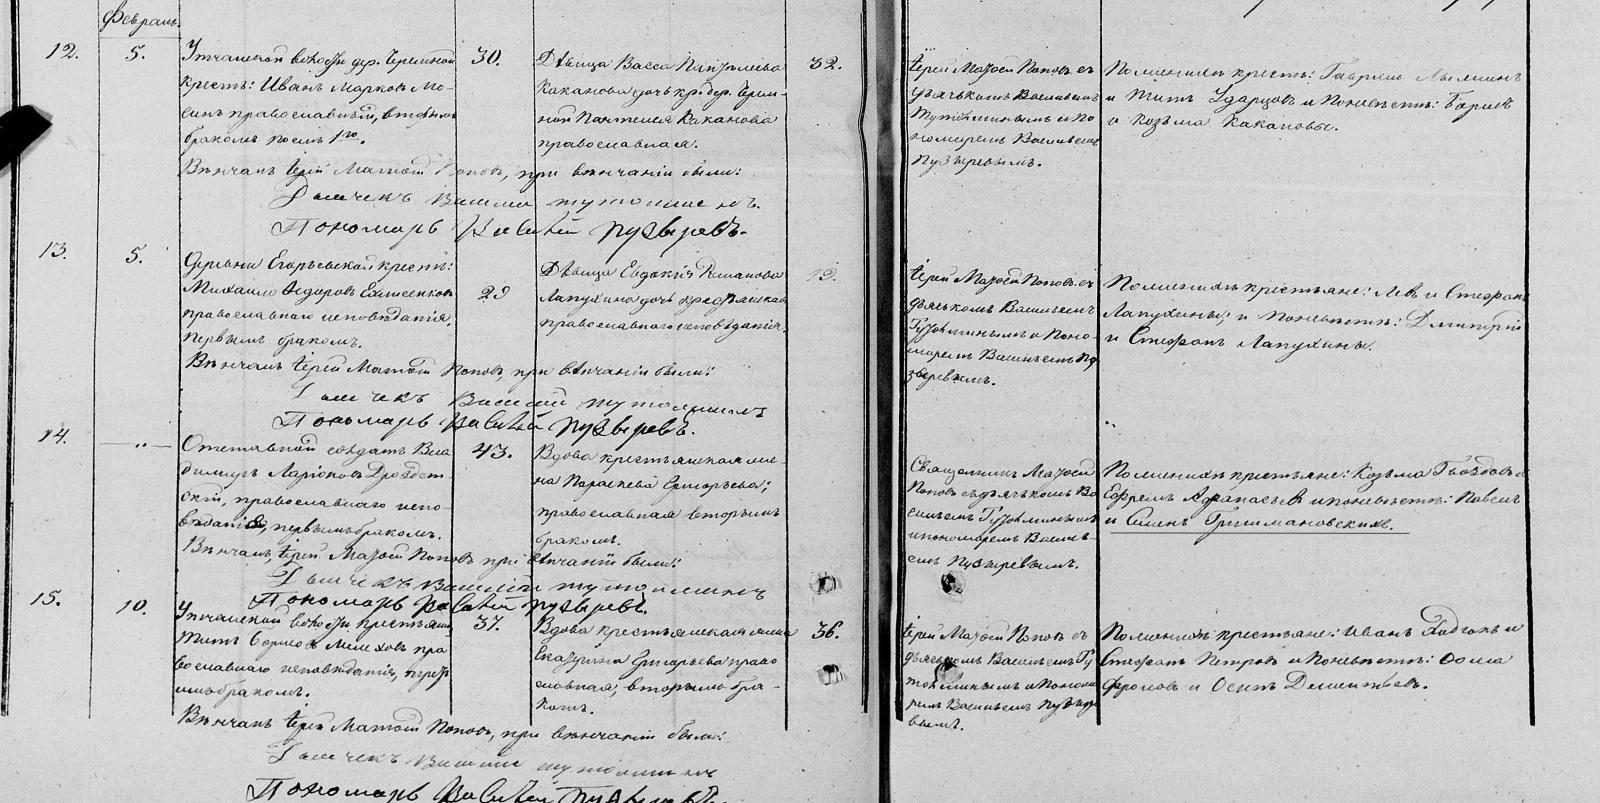 Февраль.
12.
5.
Утчанской волости дер. Черемной
крестьян: Иванъ Марковъ Мо-
синъ православный, вторымъ
бракомъ послѣ 1го.
30.
Дѣвица Васса Пантелѣева
Каканова дочь кр. дер. Черем-
ной Пантелея Каканова
православная.
32.
Іерей Матѳей Поповъ съ
дьячькомъ Васильемъ
и По-
номаремъ Васильемъ
Пузыревымъ.
По женихѣ крест: Гаврило
и Титъ Ударцовъ и по невѣстѣ: Борисъ
и Козьма Какановы.
Вѣнчалъ Іерей Матѳей Поповъ, при вѣнчаніи были:
Дьячекъ Василій
Пономарь Василій Пузыревъ.
13.
5.
Деревни Егорьевской крест:
Михаило Ѳедоровъ
православнаго исповѣданія,
первымъ бракомъ.
29
Дѣвица Евдокія Романова
Лапухина дочь крестьянская
православнаго исповѣданія.
Іерей Матѳей Поповъ съ
дьячькомъ Васильемъ
и Поно-
маремъ Васильемъ Пу-
зыревымъ.
По женихѣ крестьяне: Левъ и Стефанъ
Лапухины; и по невѣстѣ: Дмитрій
и Стефанъ Лапухины.
Вѣнчалъ Іерей Матѳей Поповъ, при вѣнчаніи были:
Дьячекъ Василій
Пономарь Василій Пузыревъ.
14.
— „ —
Отставной солдатъ Вла-
димиръ Ларіоновъ Дроздет-
скій, православнаго испо-
вѣданія, первымъ бракомъ.
43.
Вдова крестьянская же-
на Параскева Григорьева;
православная вторымъ
бракомъ.
Священникъ Матѳей
Поповъ съ дьячькомъ Ва-
сильемъ
и пономаремъ Василь-
емъ Пузыревымъ.
По женихѣ крестьяне: Козьма Гвоздовъ и
Ефремъ Афанасьевъ и по невѣстѣ: Павелъ
и Семенъ Гришмановскихъ.
Вѣнчалъ, Іерей Матѳей Поповъ при вѣнчаніи были:
Дьячекъ Василій
Пономарь Василій Пузыревъ.
15.
10.
Утчанской волости крестьян.
Титъ Борисовъ пра-
вославнаго исповѣданія, перв-
ымъ бракомъ.
37.
Вдова крестьянская жена
Екатерина Григорьева право-
славная, вторымъ бра-
комъ.
36.
Іерей Матѳей Поповъ съ
дьячькомъ Васильемъ
и Понома-
ремъ Васильемъ Пузыре-
вымъ.
По женихѣ крестьяне: Иванъ и
Стефанъ Петровъ и по невѣстѣ: Ѳома
Фроловъ и Осипъ Дементьевъ.
Вѣнчалъ Іерей Матѳей Поповъ, при вѣнчаніи были:
Дьячекъ Василій
Пономарь Василій Пузыревъ.